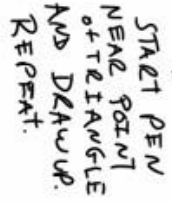 START PEN
NEAR POINT
of TRIANGLE
AND DRAW UP.
REPEAT.